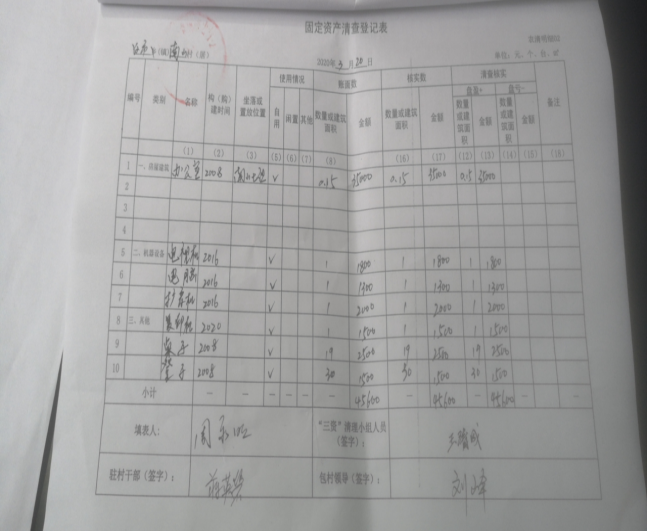 固定资产清查登记表
乡(镇) 村(居)
2020年3月20日
单位：元、个、台、㎡
编号 类别 名称 构（购）建时间 坐落或置放位置 使用情况 账面数 核实数 清查核实 备注
自用 闲置 其他 数量或建筑面积 金额 数量或建筑面积 金额 盘盈+ 盘亏-
数量或建筑面积 金额 数量或建筑面积 金额
(1) (2) (3) (5) (6) (7) (8) (16) (17) (12) (13) (14) (15) (18)
1 办公室 2008 √ 0.15 35000 0.15 35000 0.15 35000
2
3
4
5 二、机器设备 2016 √ 1 1800 1 1800 1 1800
6 电脑 2016 √ 1 1300 1 1300 1 1300
7 2016 √ 1 2000 1 2000 1 2000
8 三、其他 复印机 2020 √ 1 1500 1 1500 1 1500
9 桌子 2008 √ 19 2500 19 2500 19 2500
10 凳子 2008 √ 30 1500 30 1500 30 1500
小计 — — — — — — — 45600 — 45600 — 45600 — — —
填表人： "三资"清理小组人员（签字）：
驻村干部（签字）： 包村领导（签字）： 刘峰